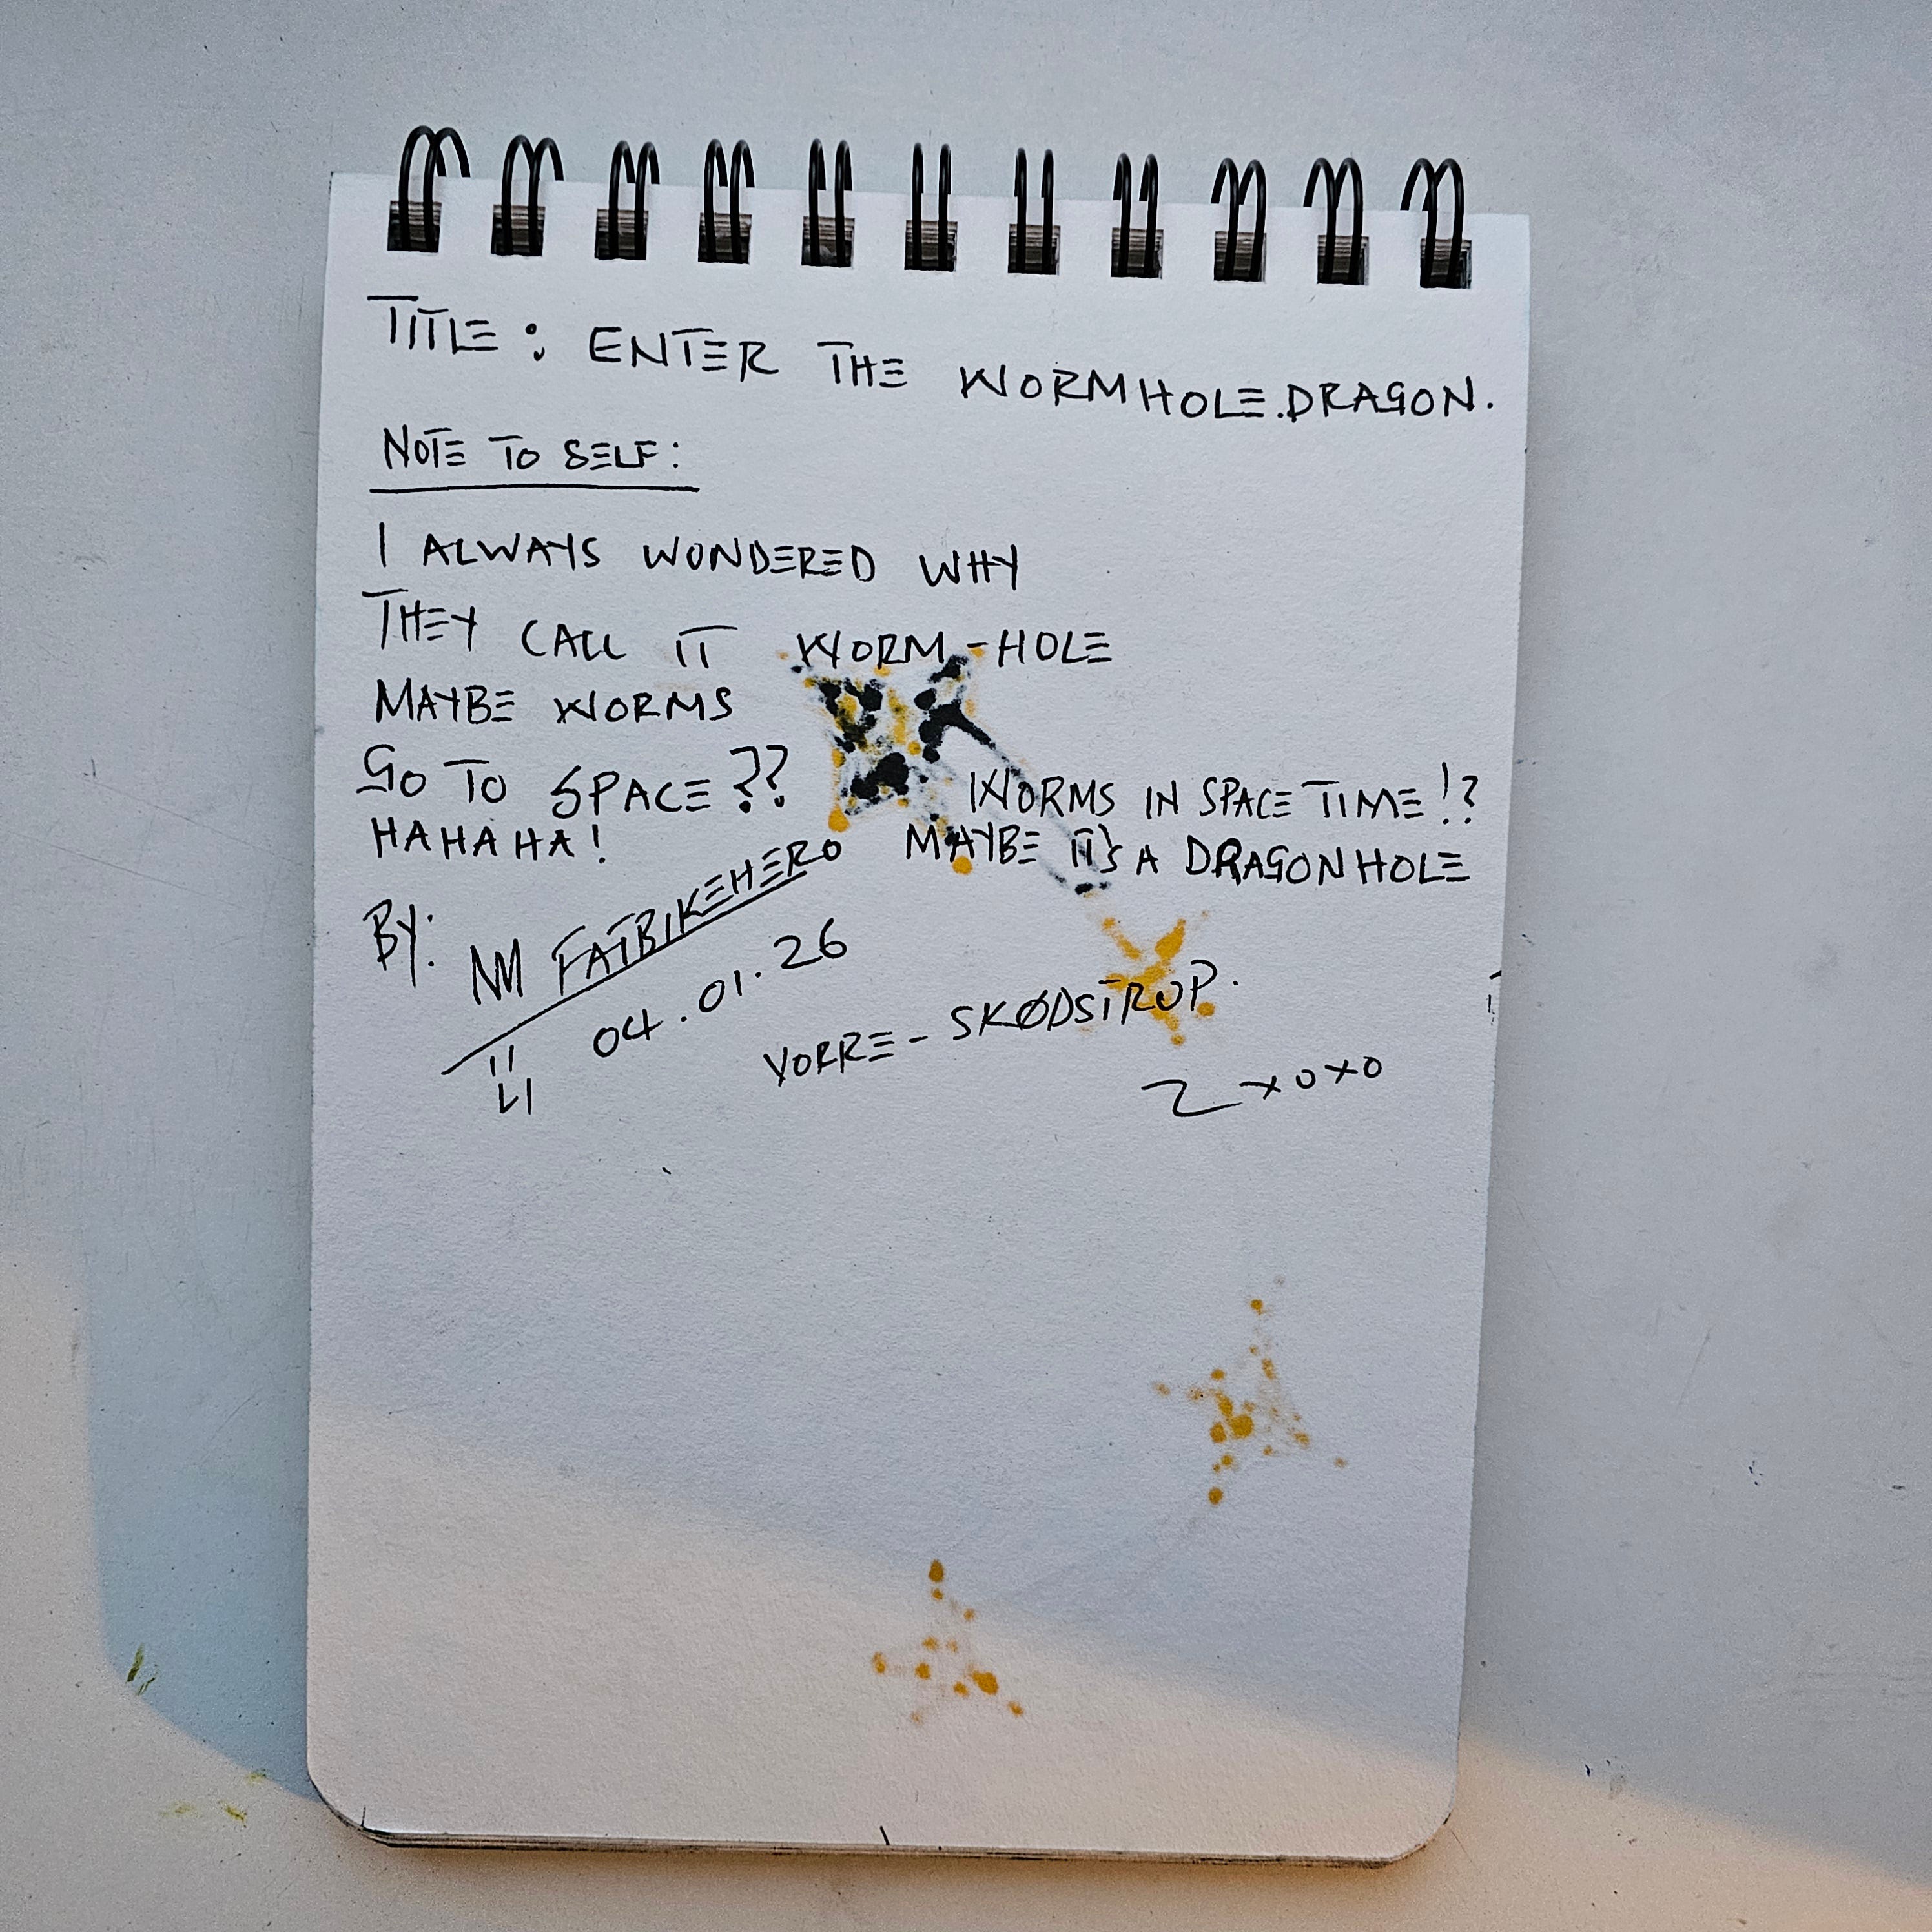 TITLE: ENTER THE WORMHOLE.DRAGON.
NOTE TO SELF:
I ALWAYS WONDERED WHY
THEY CALL IT WORM-HOLE
MAYBE WORMS
GO TO SPACE??
HAHAHA!
WORMS IN SPACE TIME!?
MAYBE IT'S A DRAGONHOLE
BY: NM FATBIKEHERO
04.01.26
VORRE-SKØDSTRUP.
XOXO